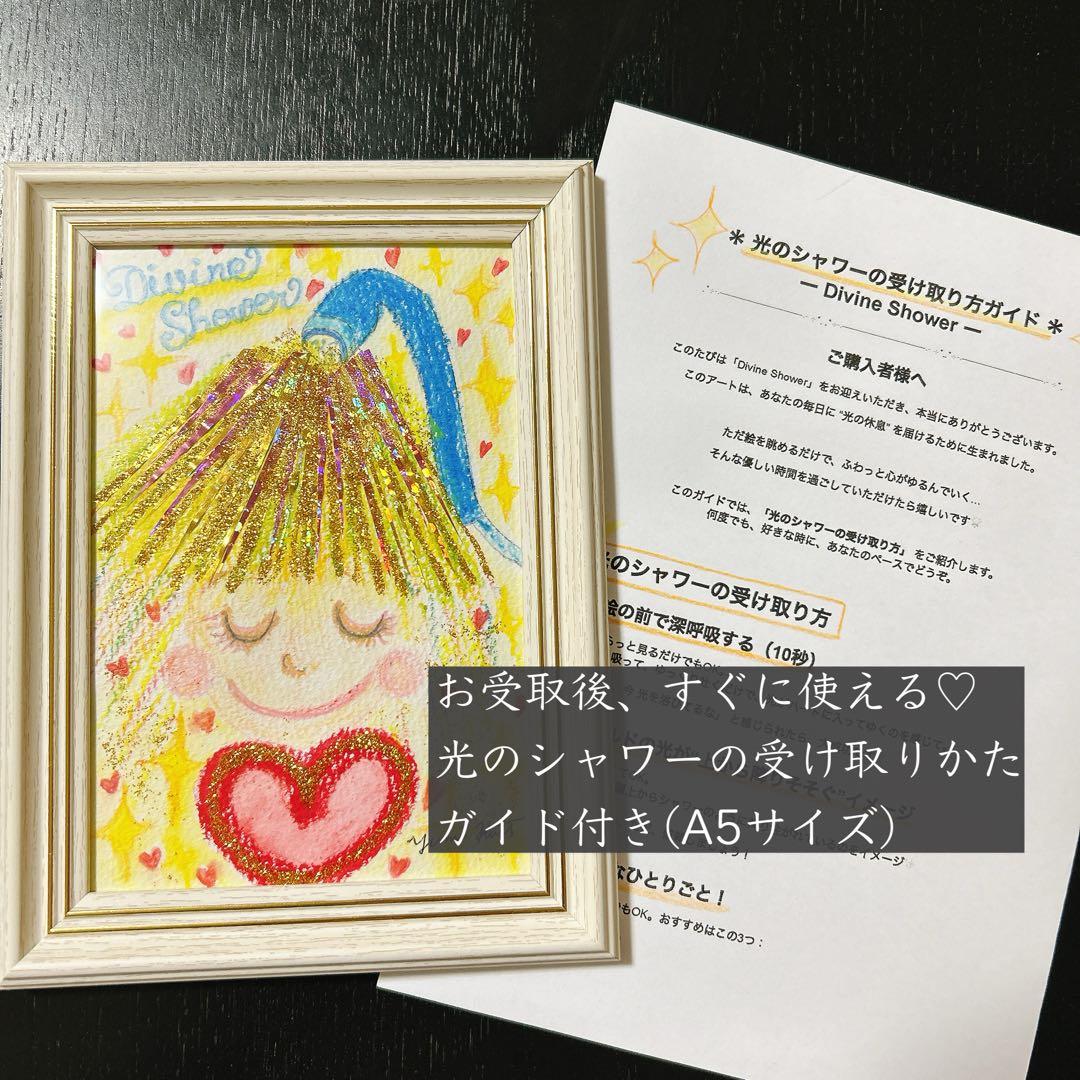 Divine
Shower
＊ 光のシャワーの受け取り方ガイド ＊
ー Divine Shower ー
ご購入者様へ
このたびは「Divine Shower」をお迎えいただき、本当にありがとうございます。
このアートは、あなたの毎日に “光の休息” を届けるために生まれました。
ただ絵を眺めるだけで、ふわっと心がゆるんでいく…
そんな優しい時間を過ごしていただけたら嬉しいです
このガイドでは、「光のシャワーの受け取り方」 をご紹介します。
何度でも、好きな時に、あなたのペースでどうぞ。
のシャワーの受け取り方
絵の前で深呼吸する（10秒）
っと見るだけでもOK
お受取後、すぐに使える♡
光のシャワーの受け取りかた
ガイド付き(A5サイズ)
なひとりごと！
もOK。おすすめはこの3つ：